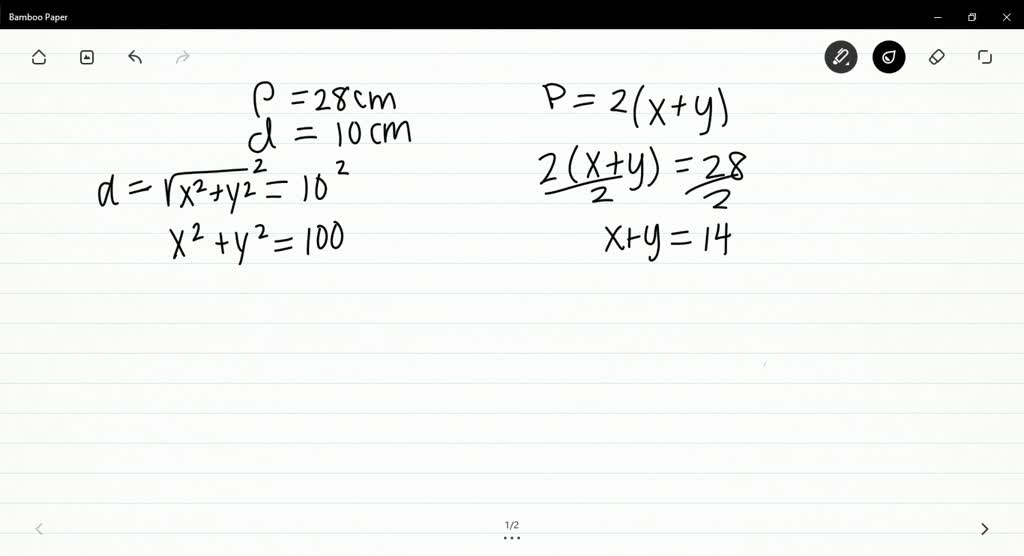 Bamboo Paper
P = 28 cm
d = 10 cm
d = √x²+y²² = 10²
x² + y² = 100
P = 2(x+y)
2(x+y)/2 = 28/2
x+y = 14
1/2